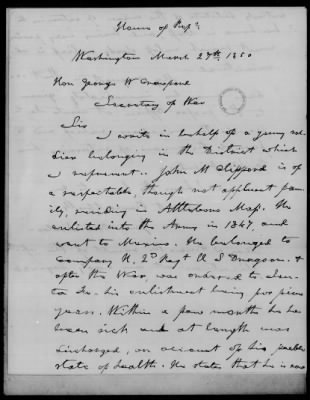 House of Rep.s
Washington March 27th, 1850
Hon George W Crawford
Secretary of War
Sir
I write in behalf of a young sol-
dier belonging in the District which
I represent. John M Clifford is of
a respectable, though not affluent fam-
ily, residing in Attleboro Mass. He
enlisted into the Army in 1847, and
went to Mexico. He belonged to
company H. 2d Regt U S Dragoons. &
after the War, was ordered to
his enlistment being for five
years. Within a few months he has
been sick and at length was
discharged, on account of his feeble
state of health. He states that he is now